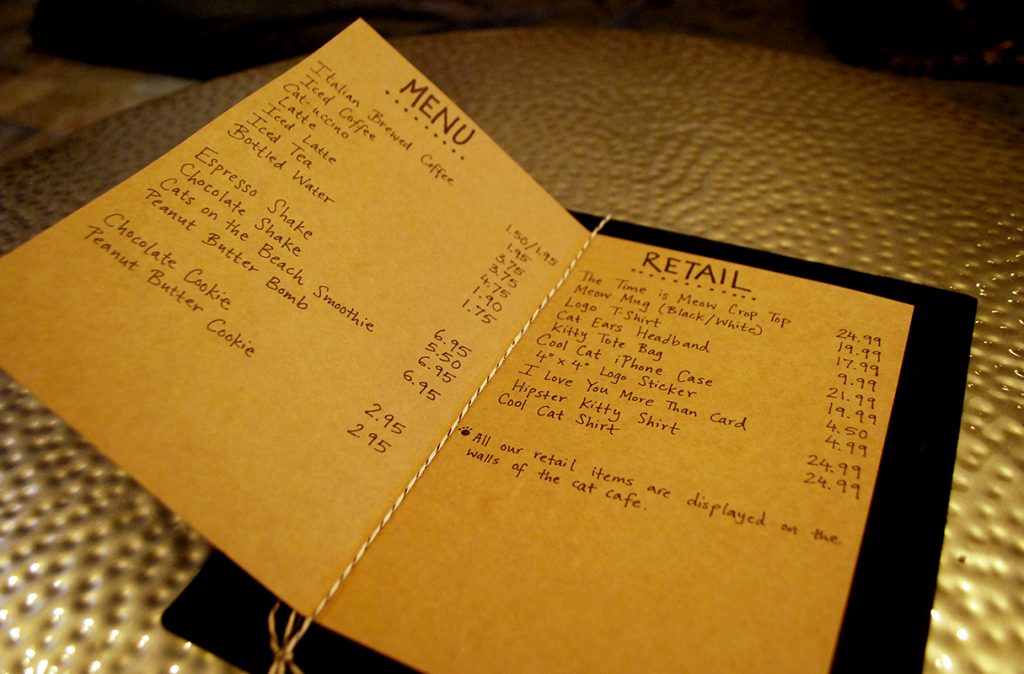 MENU
Italian Brewed Coffee 1.50/1.95
Iced Coffee 1.95
Cat-uccino 3.75
Latte 3.75
Iced Latte 4.75
Iced Tea 1.90
Bottled Water 1.75
Espresso Shake 6.95
Chocolate Shake 5.50
Cats on the Beach Smoothie 6.95
Peanut Butter Bomb 6.95
Chocolate Cookie 2.95
Peanut Butter Cookie 2.95
RETAIL
The Time is Meow Crop Top 24.99
Meow Mug (Black/White) 19.99
Logo T-Shirt 17.99
Cat Ears Headband 9.99
Kitty Tote Bag 21.99
Cool Cat iPhone Case 19.99
4" x 4" Logo Sticker 4.50
I Love You More Than Card 4.99
Hipster Kitty Shirt 24.99
Cool Cat Shirt 24.99
All our retail items are displayed on the
walls of the cat cafe.